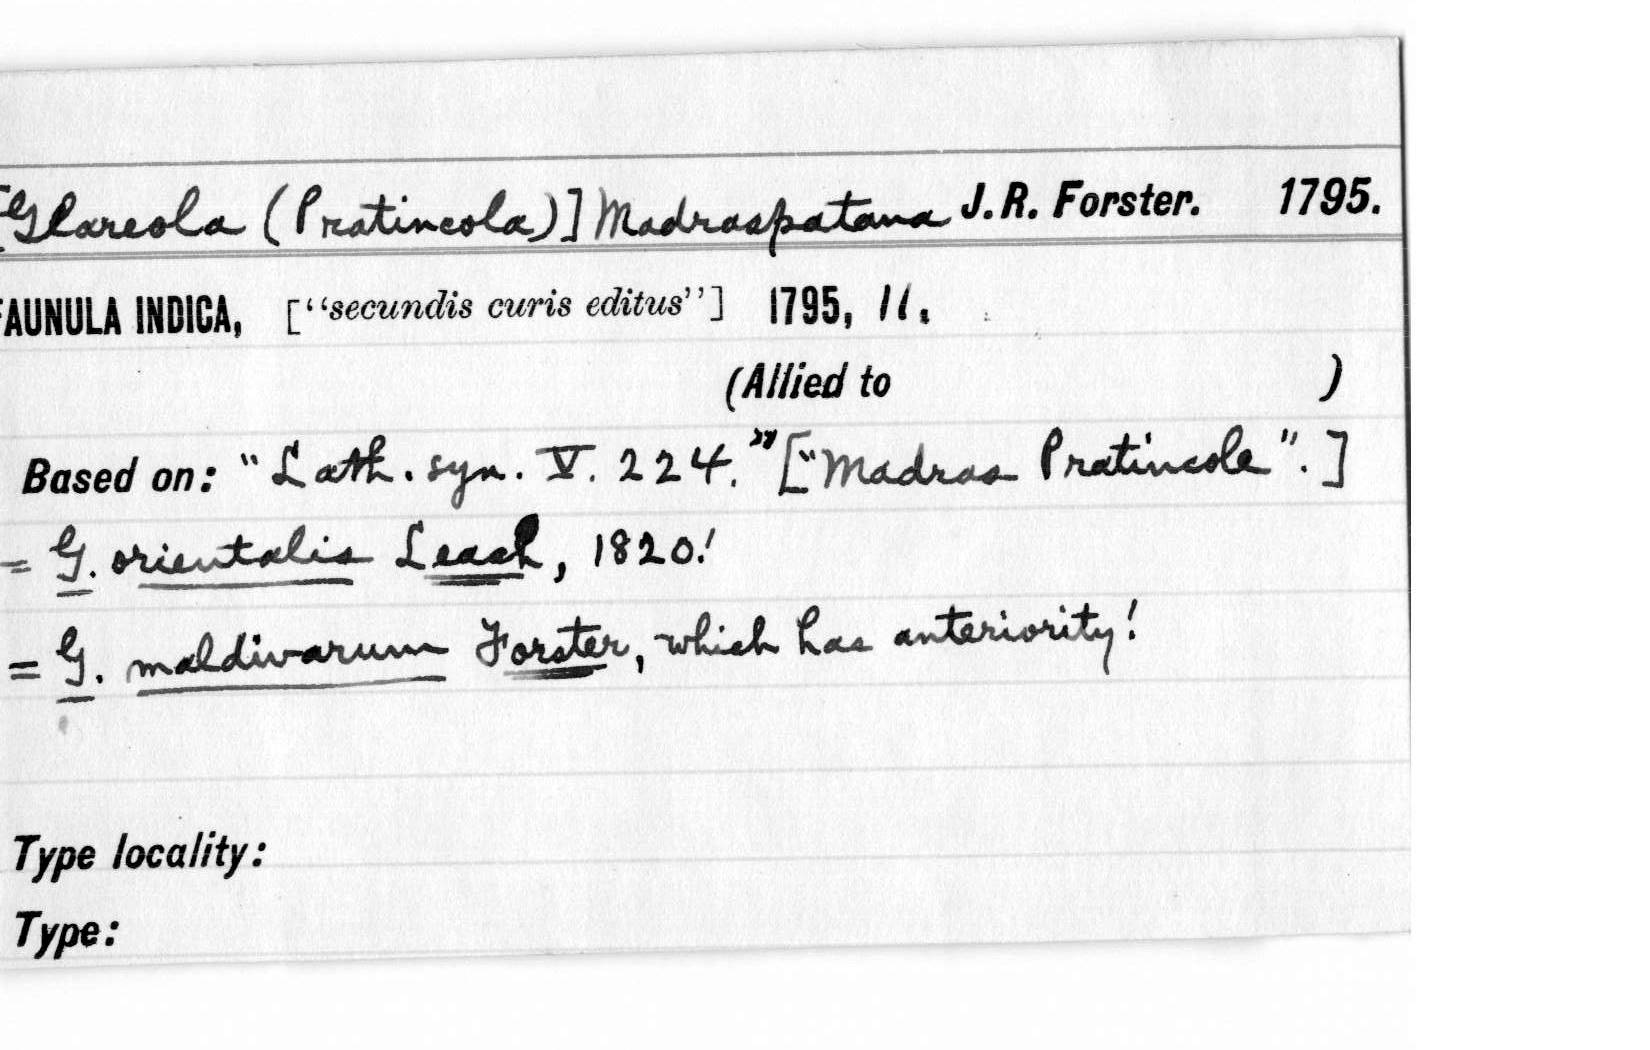 [Glareola (Pratincola)] Madraspatana J. R. Forster. 1795.
FAUNULA INDICA, [“secundis curis editus”] 1795, 11.
(Allied to )
Based on: “Lath. syn. V. 224.” [“Madras Pratincole”.]
= G. orientalis Leach, 1820!
= G. maldivarum Forster, which has anteriority!
Type locality:
Type: